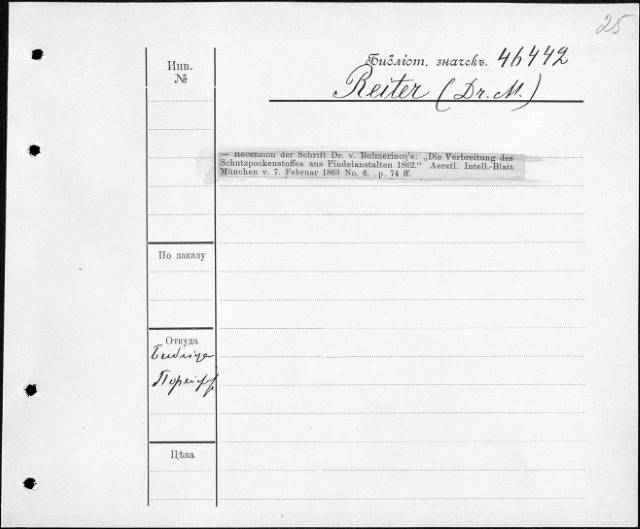 25
Инв.
№
Библіот. значекъ. 46442
Reiter (Dr. M.)
— Recension der Schrift Dr. v. Bulmerincq's: „Die Verbreitung des
Schutzpockenstoffes aus Findelanstalten 1862.“ Aerztl. Intell.-Blatt
München v. 7. Februar 1863 No. 6. p. 74 ff.
По заказу
Откуда
Цѣна